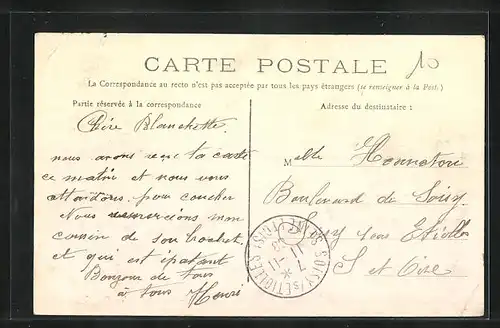 CARTE POSTALE
10
La Correspondance au recto n'est pas acceptée par tous les pays étrangers (se renseigner à la Post.)
Partie réservée à la correspondance
Adresse du destinataire :
Chère Blanchette.
nous avons reçu ta carte
ce matin et nous vous
attendons pour coucher
Nous remercions mon
cousin de son bouchet
et qui est épatant
Bonjour de tous
à tous Henri
Melle Honnetou
Boulevard de Soisy
Soisy sous Etiolles
S et Oise
SOISY-S/S-ETIOLLES
SEINE-ET-OISE
7 -11
11